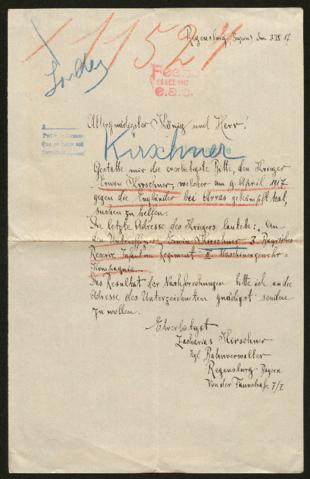 11524
Regensburg, Bayern, den 3. XII. 17.
London
Allergnädigster König und Herr!
Kirschner
Gestatte mir die ehrerbietigste Bitte, den Krieger
Erwin Kerschner, welcher am 9. April 1917
gegen die Engländer bei Arras gekämpft hat,
suchen zu helfen.
Die letzte Adresse des Kriegers lautete: An
den Unteroffizier Erwin Kerschner 3. Bayrisches
Reserve Infanterie Regiment II. Maschinengewehr-
Kompagnie.
Das Resultat der Nachforschungen bitte ich an die
Adresse des Unterzeichneten gnädigst senden
zu wollen.
Ehrerbietigst
Zacharias Kerschner
kgl. Bahnverwalter
Regensburg Bayern
Von der Tannstraße